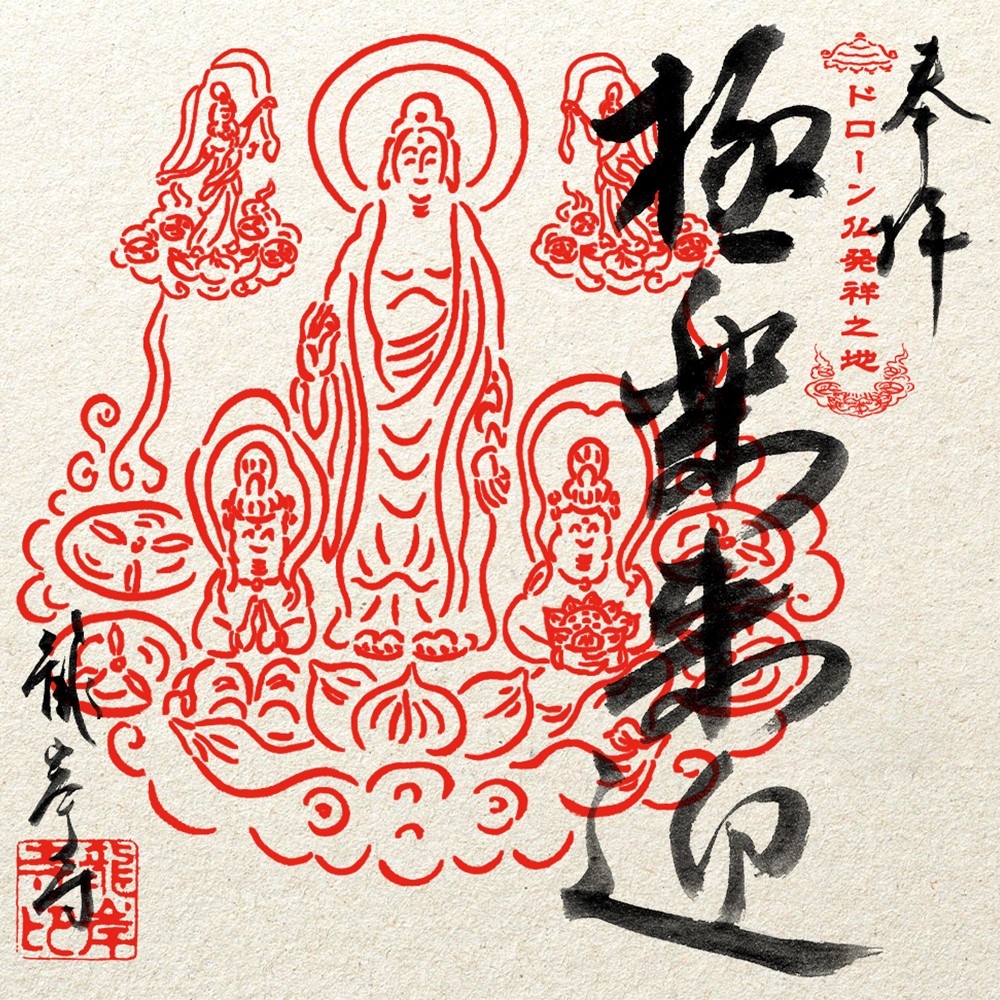 奉拝
ドローン仏発祥之地
極楽来迎
龍岸寺
龍岸
寺印